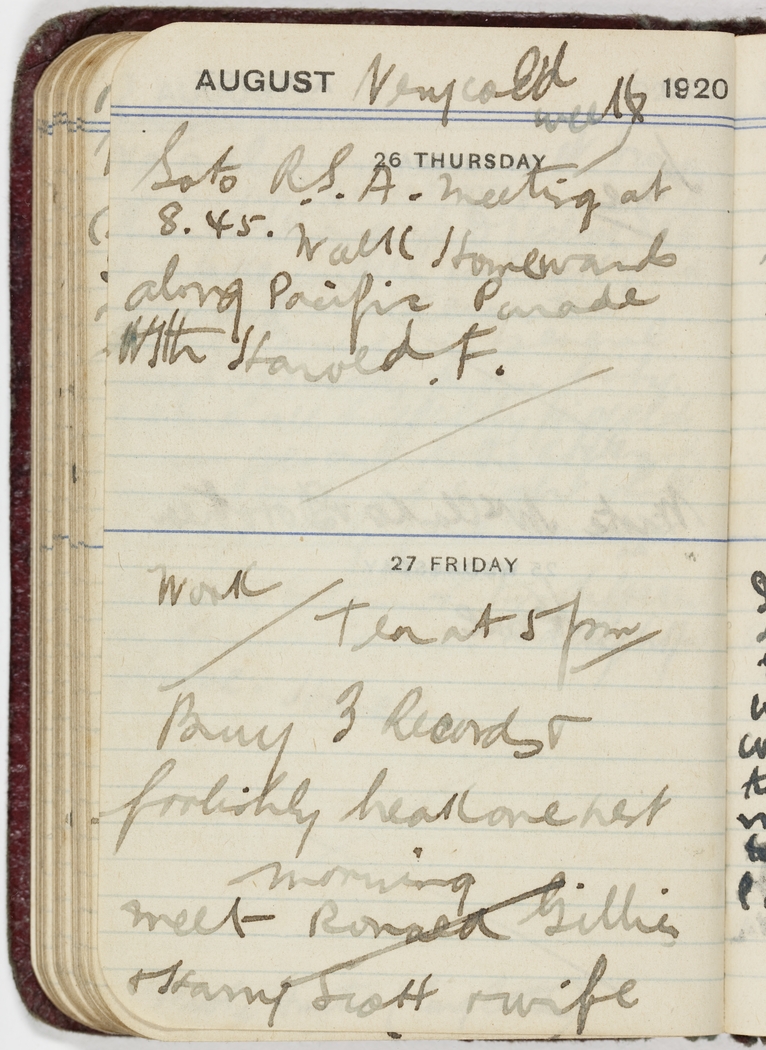 AUGUST Very cold 1920
week
26 THURSDAY
Go to R.S.A. meeting at
8.45. Walk Homewards
along Pacific Parade
With Harold F.
27 FRIDAY
Work
Tea at 5 pm
Buy 3 Records &
foolishly break one next
morning
meet Ronald Gillies
& Harry Scott & wife